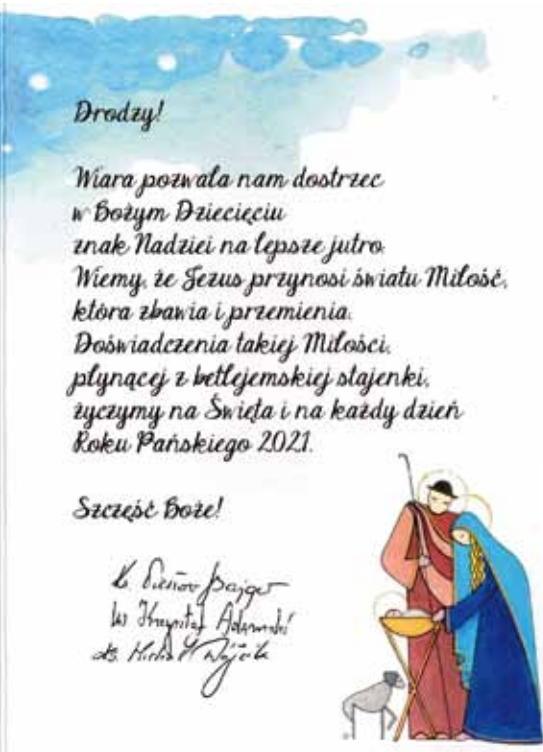 Drodzy!
Wiara pozwala nam dostrzec
w Bożym Dziecięciu
znak Nadziei na lepsze jutro.
Wiemy, że Jezus przynosi światu Miłość,
która zbawia i przemienia.
Doświadczenia takiej Miłości,
płynącej z betlejemskiej stajenki,
życzymy na Święta i na każdy dzień
Roku Pańskiego 2021.
Szczęść Boże!
ks. Bajger
ks. Krzysztof
ks. Wójcik